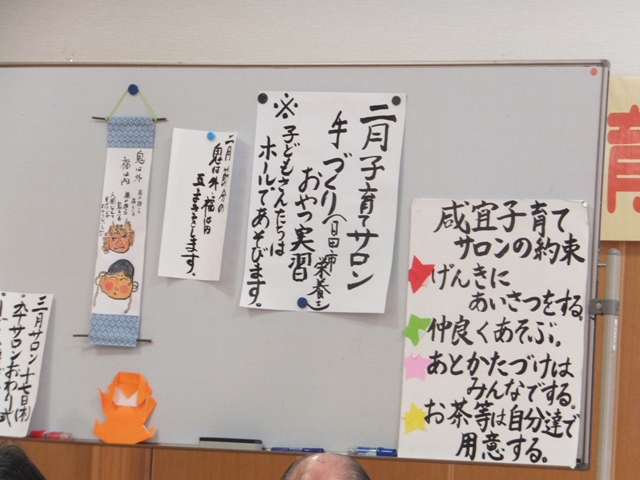 二月子育てサロン
手づくり(日田市栄養士)
おやつ実習
※子どもさんたちは
ホールであそびます。
咸宜子育て
サロンの約束
げんきに
あいさつをする。
仲良くあそぶ。
あとかたづけは
みんなでする。
お茶等は自分達で
用意する。
二月
鬼は外、福は内
豆まきをします。
鬼は外
福は内
三月サロン十七日(木)
サロンおわり式
育